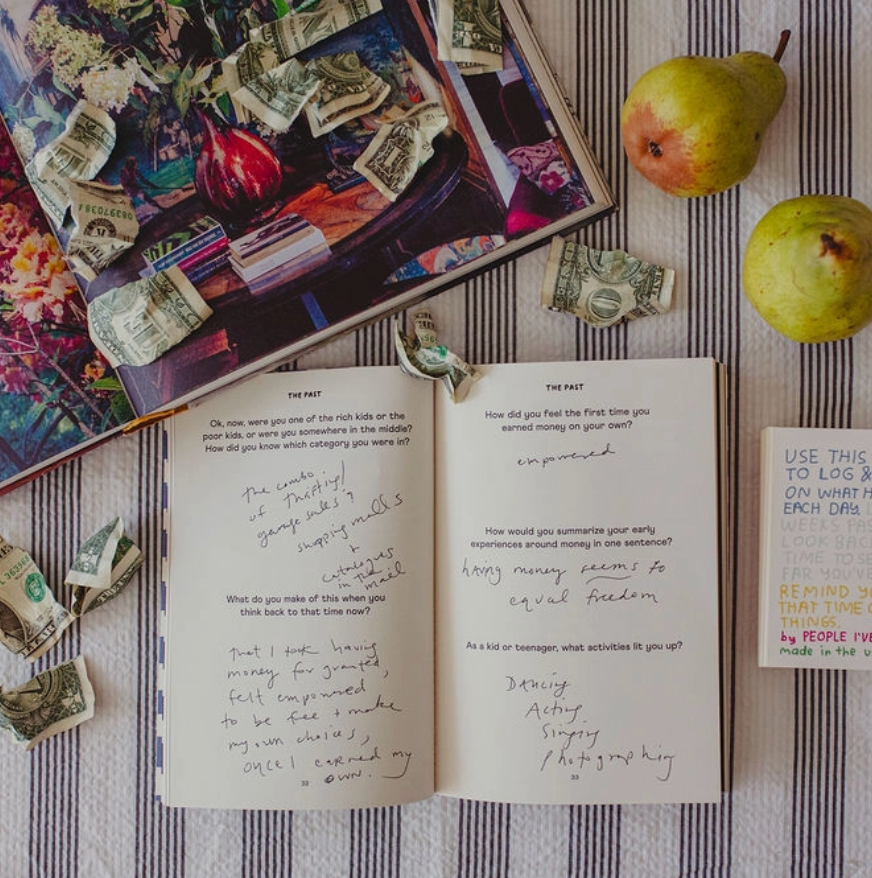 THE PAST
Ok, now, were you one of the rich kids or the
poor kids, or were you somewhere in the middle?
How did you know which category you were in?
the combo
of thrifting/
garage sales &
shopping malls
+
catalogues
in the
mail
What do you make of this when you
think back to that time now?
that I took having
money for granted,
felt empowered
to be free + make
my own choices,
once I earned my
own.
THE PAST
How did you feel the first time you
earned money on your own?
empowered
How would you summarize your early
experiences around money in one sentence?
having money seems to
equal freedom
As a kid or teenager, what activities lit you up?
Dancing
Acting
Singing
photographing
33
USE THIS
TO LOG &
ON WHAT H
EACH DAY.
WEEKS PAS
LOOK BACK
TIME TO SE
FAR YOU'VE
REMIND YO
THAT TIME C
THINGS.
by PEOPLE I'VE
made in the u